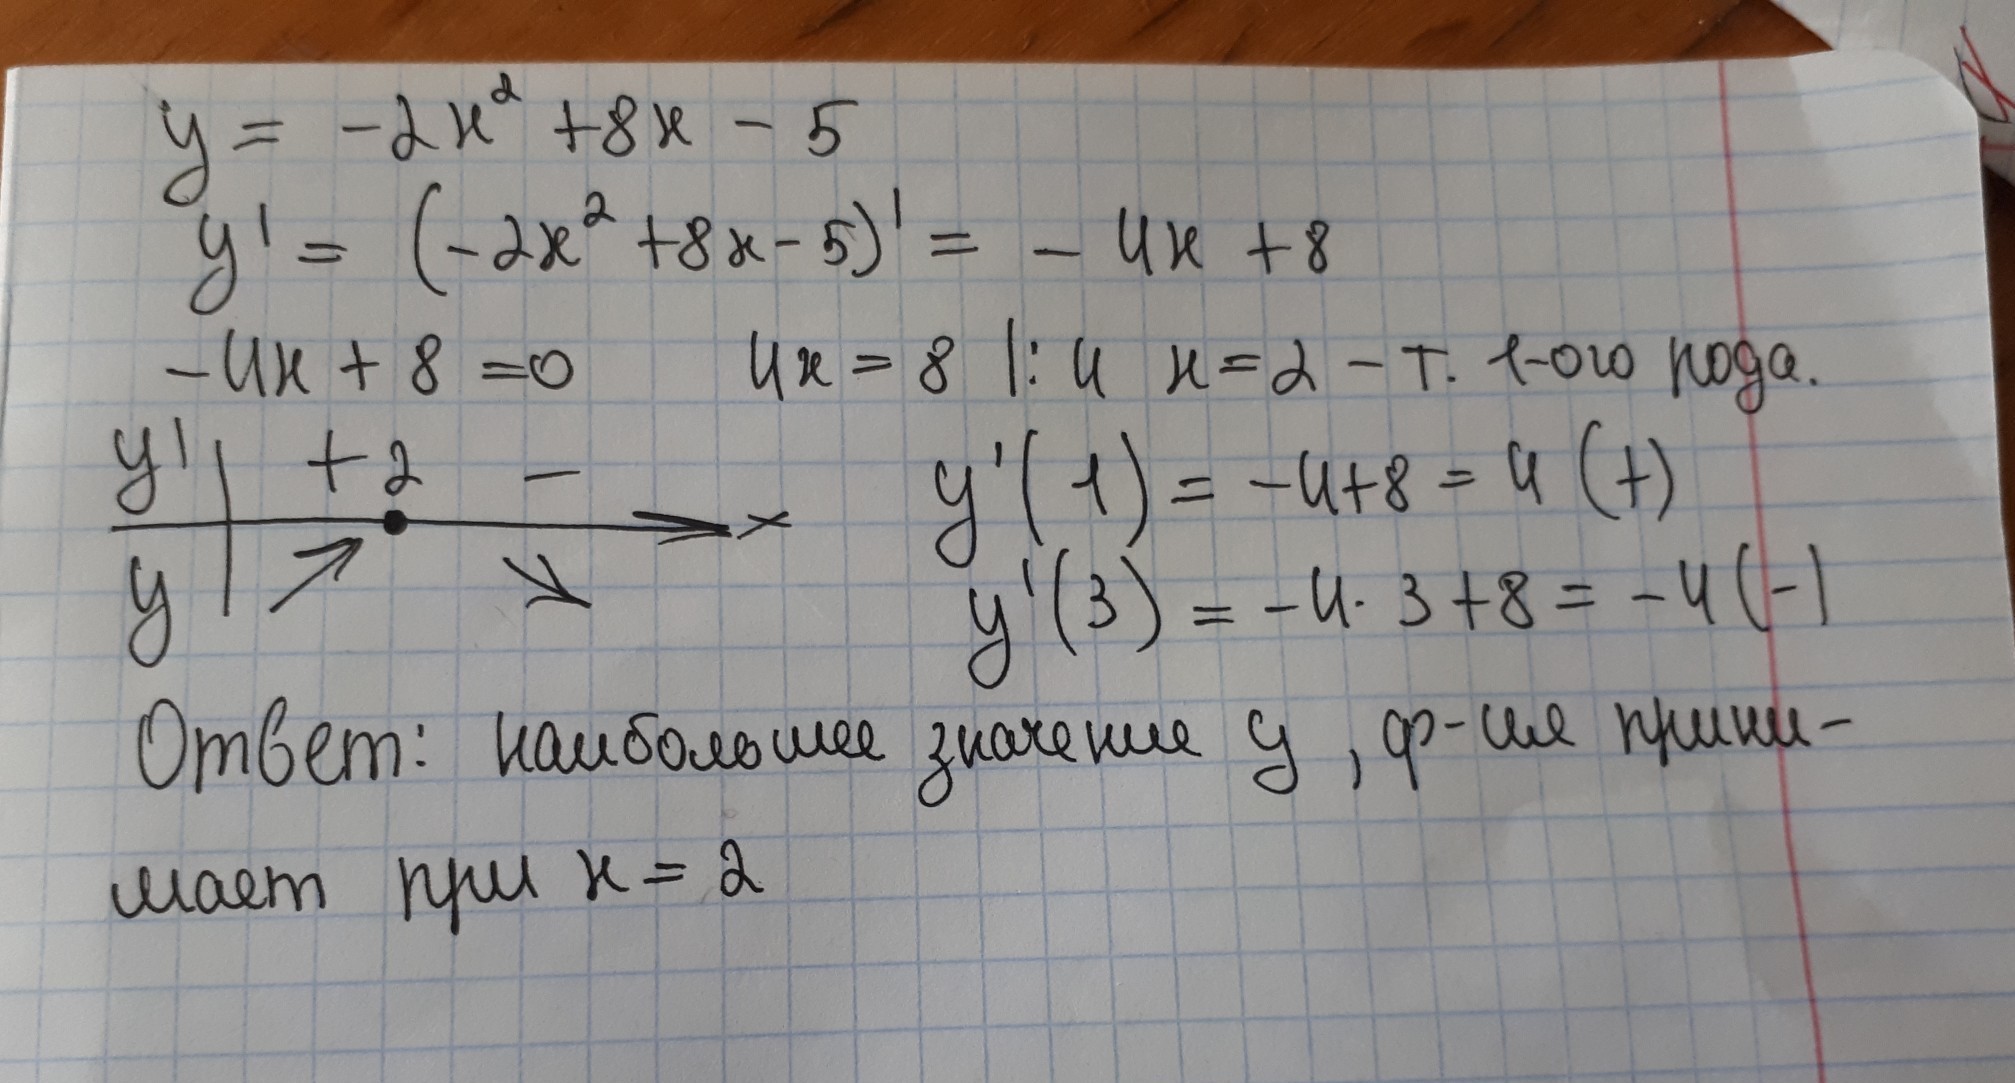 y = -2x² + 8x - 5
y' = (-2x² + 8x - 5)' = - 4x + 8
-4x + 8 = 0 4x = 8 |: 4 x = 2 - т. 1-ого рода.
y' + 2 - x
y
y'(1) = -4+8 = 4 (+)
y'(3) = -4·3+8 = -4 (-)
Ответ: наибольшее значение y, ф-ия прини-
мает при x = 2